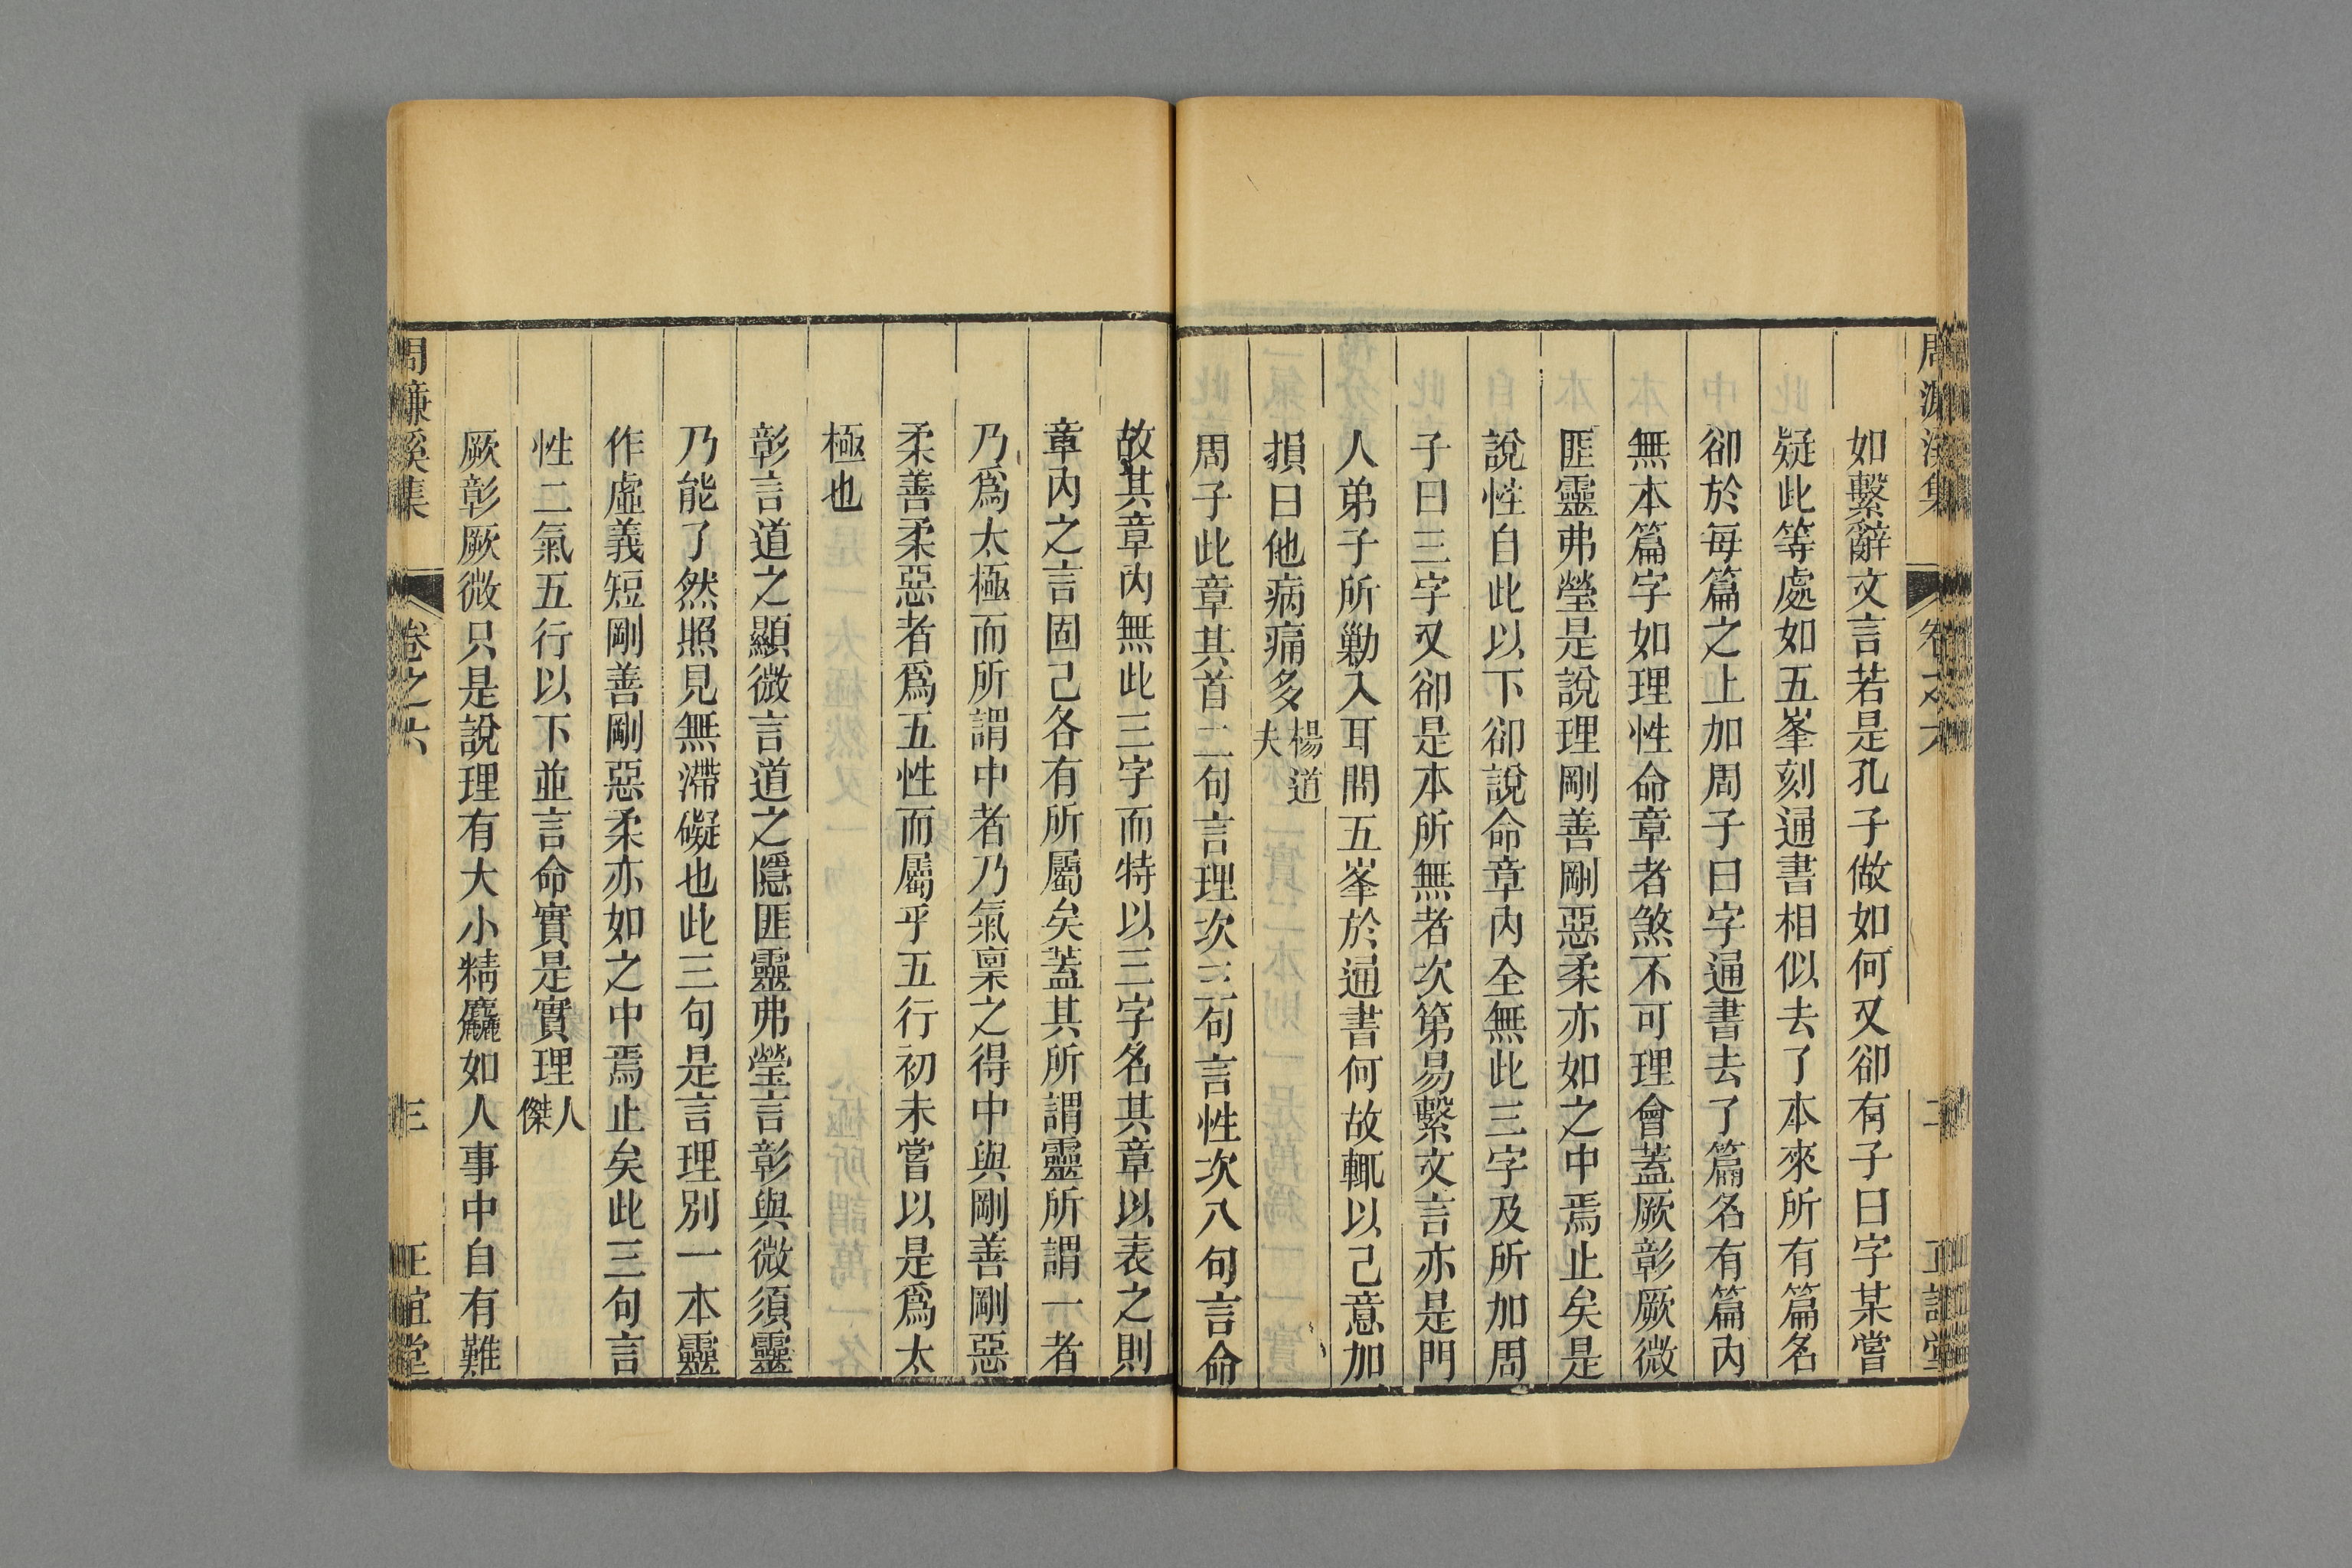 周濂溪集 卷之六 二 正誼堂
如繫辭文言若是孔子做如何又卻有子曰字某嘗
疑此等處如五峯刻通書相似去了本來所有篇名
卻於每篇之上加周子曰字通書去了篇名有篇內
無本篇字如理性命章者煞不可理會蓋厥彰厥微
匪靈弗瑩是說理剛善剛惡柔亦如之中焉止矣是
說性自此以下卻說命章內全無此三字及所加周
子曰三字又卻是本所無者次第易繫文言亦是門
人弟子所勦入耳問五峯於通書何故輒以己意加
損曰他病痛多楊道夫
周子此章其首二句言理次三句言性次八句言命
故其章內無此三字而特以三字名其章以表之則
章內之言固己各有所屬矣蓋其所謂靈所謂一者
乃爲太極而所謂中者乃氣稟之得中與剛善剛惡
柔善柔惡者爲五性而屬乎五行初未嘗以是爲太
極也
彰言道之顯微言道之隱匪靈弗瑩言彰與微須靈
乃能了然照見無滯礙也此三句是言理別一本靈
作虛義短剛善剛惡柔亦如之中焉止矣此三句言
性二氣五行以下並言命實是實理人傑
厥彰厥微只是說理有大小精麤如人事中自有難
周濂溪集 卷之六 三 正誼堂